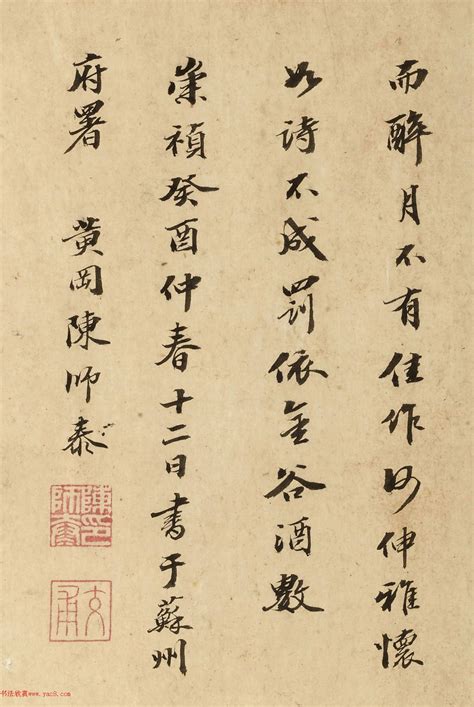 而醉月不有佳作何伸雅懷
如詩不成罰依金谷酒數
崇禎癸酉仲春十二日書于蘇州
府署 黃岡陳師泰
陳師泰印
书法欣赏www.yac8.com